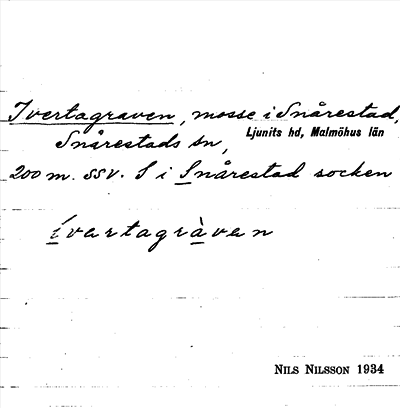 Ivertagraven, mosse i Snårestad,
Ljunits hd, Malmöhus län
Snårestads sn,
200 m. SSV. S i Snårestad socken
ívartagràven
NILS NILSSON 1934